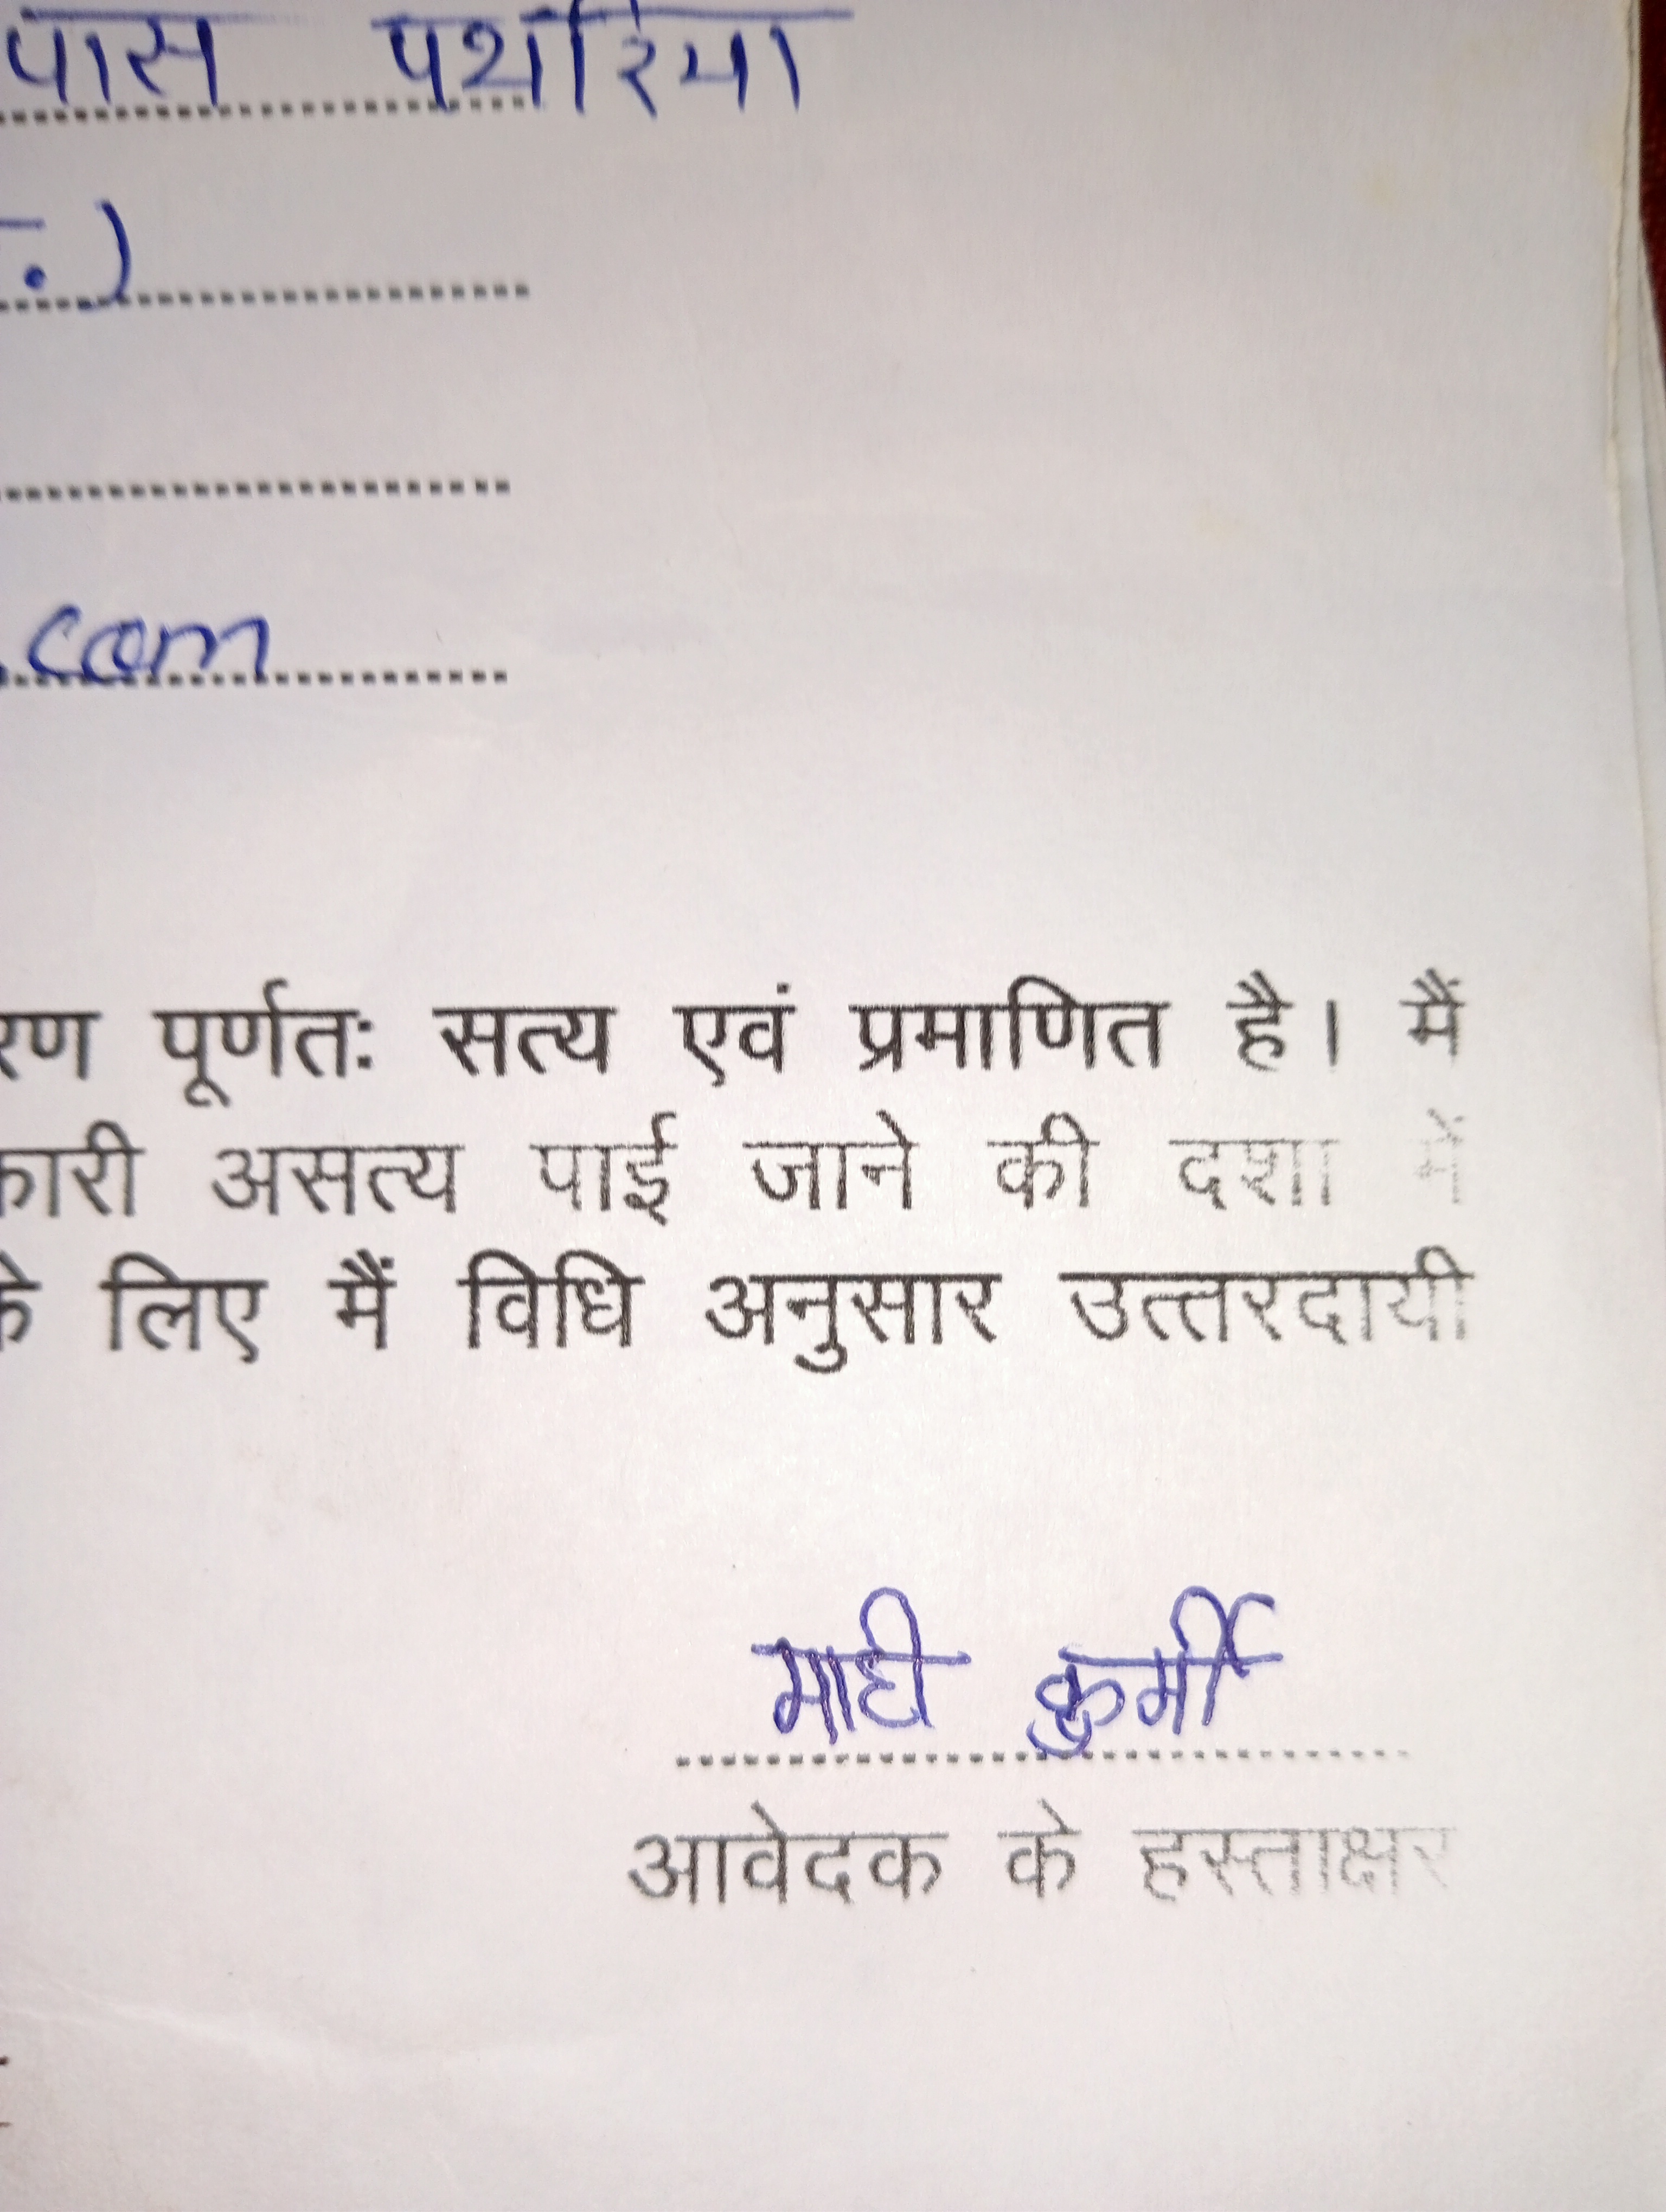 पास पथरिया
.)
.com
रण पूर्णतः सत्य एवं प्रमाणित है। मैं
कारी असत्य पाई जाने की दशा में
के लिए मैं विधि अनुसार उत्तरदायी
माही कुर्मी
आवेदक के हस्ताक्षर